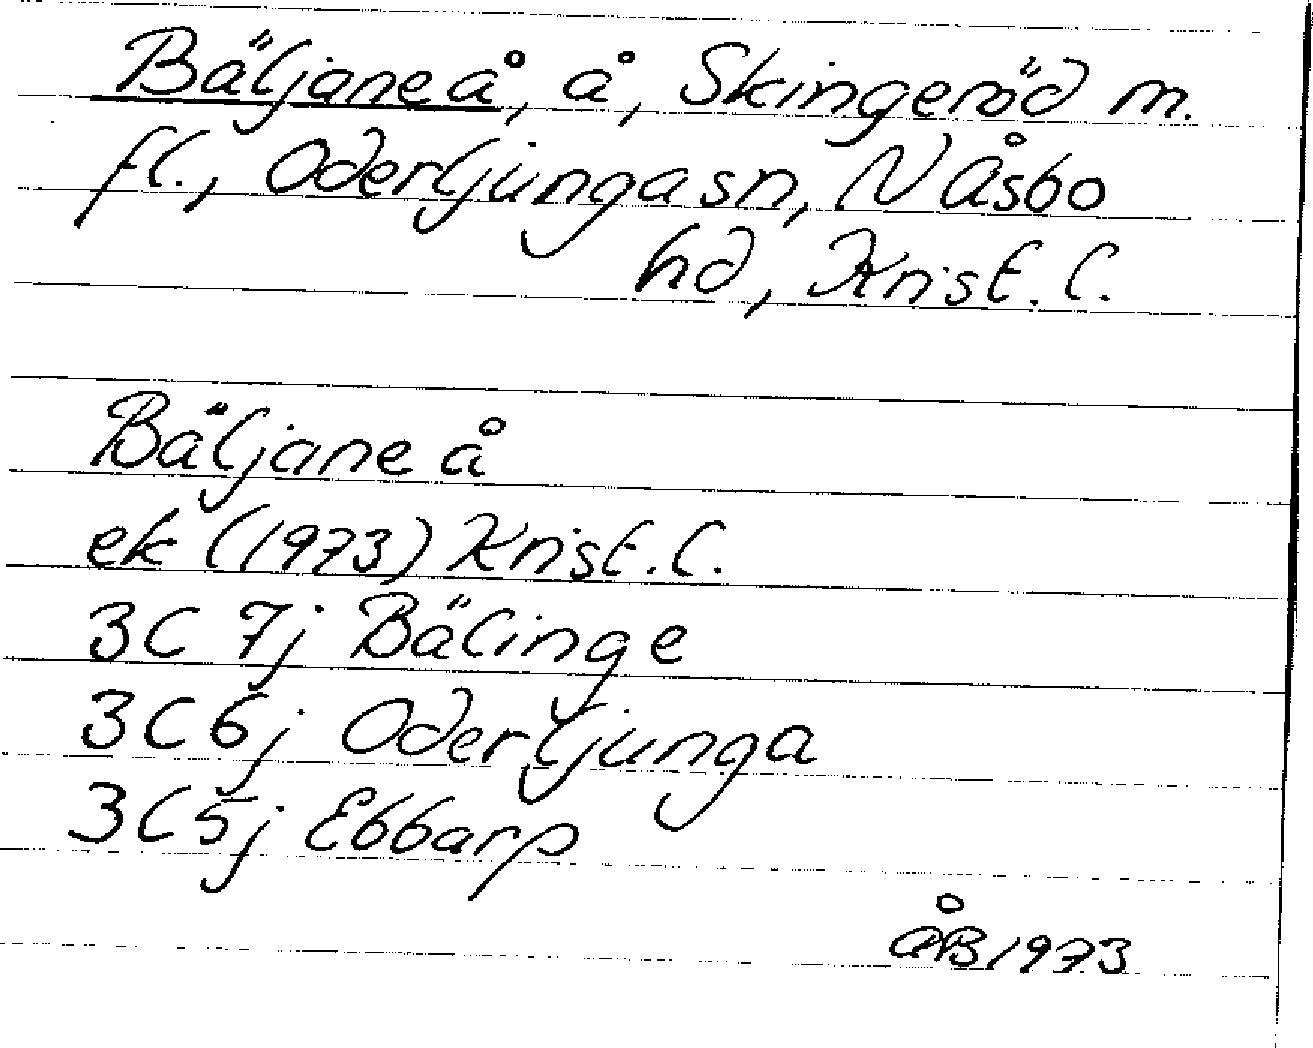 Bäljaneå, å, Skingeröd m.
fl., Oderljunga sn, N Åsbo
hd, Krist. l.
Bäljane å
ek (1973) Krist. l.
3C 7j Bälinge
3C 6j Oderljunga
3C 5j Ebbarp
ÅB 1973